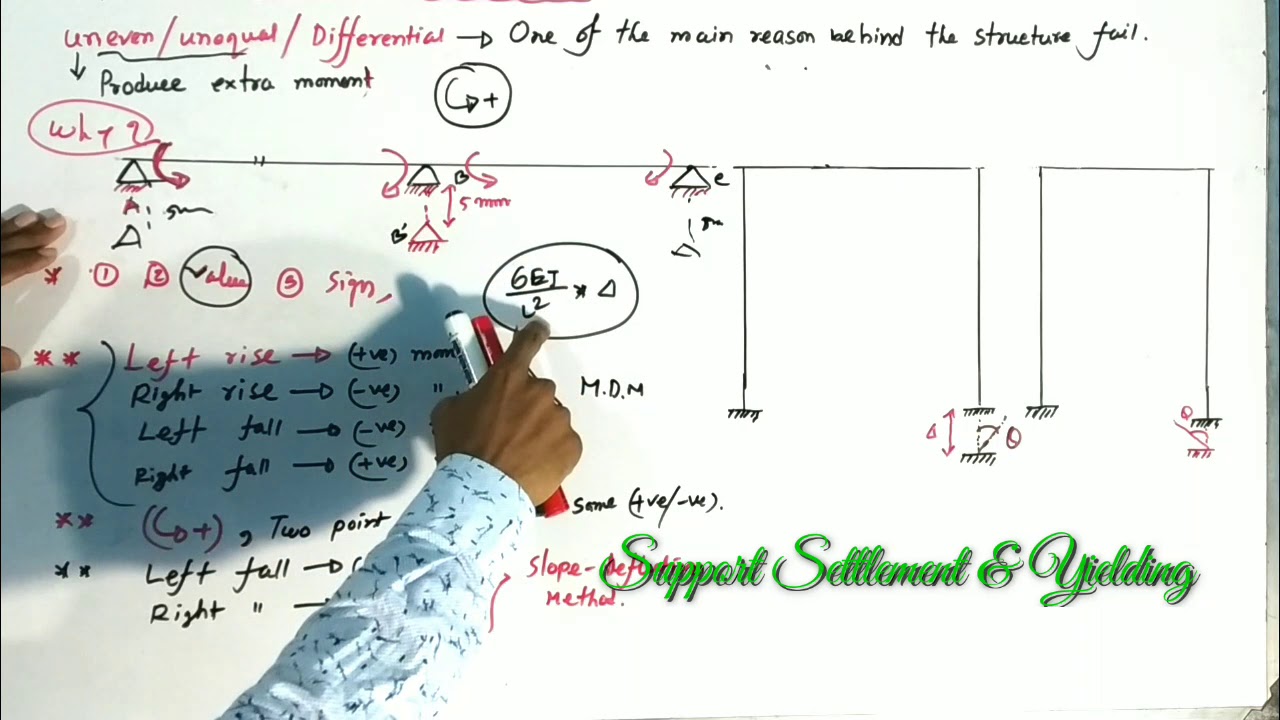 uneven/unequal/Differential → One of the main reason behind the structure fail.
↓ Produce extra moment
+
Why?
A B C
5 mm
B'
* ① ② Value ③ Sign,
6EI/L² * Δ
** Left rise → (+ve) mom
Right rise → (-ve) "
M.D.M
Left fall → (-ve)
Right fall → (+ve)
Δ θ θ
** (+), Two point
Same (+ve/-ve).
** Left fall → (
Right " →
Slope-
Method.
Support Settlement & Yielding